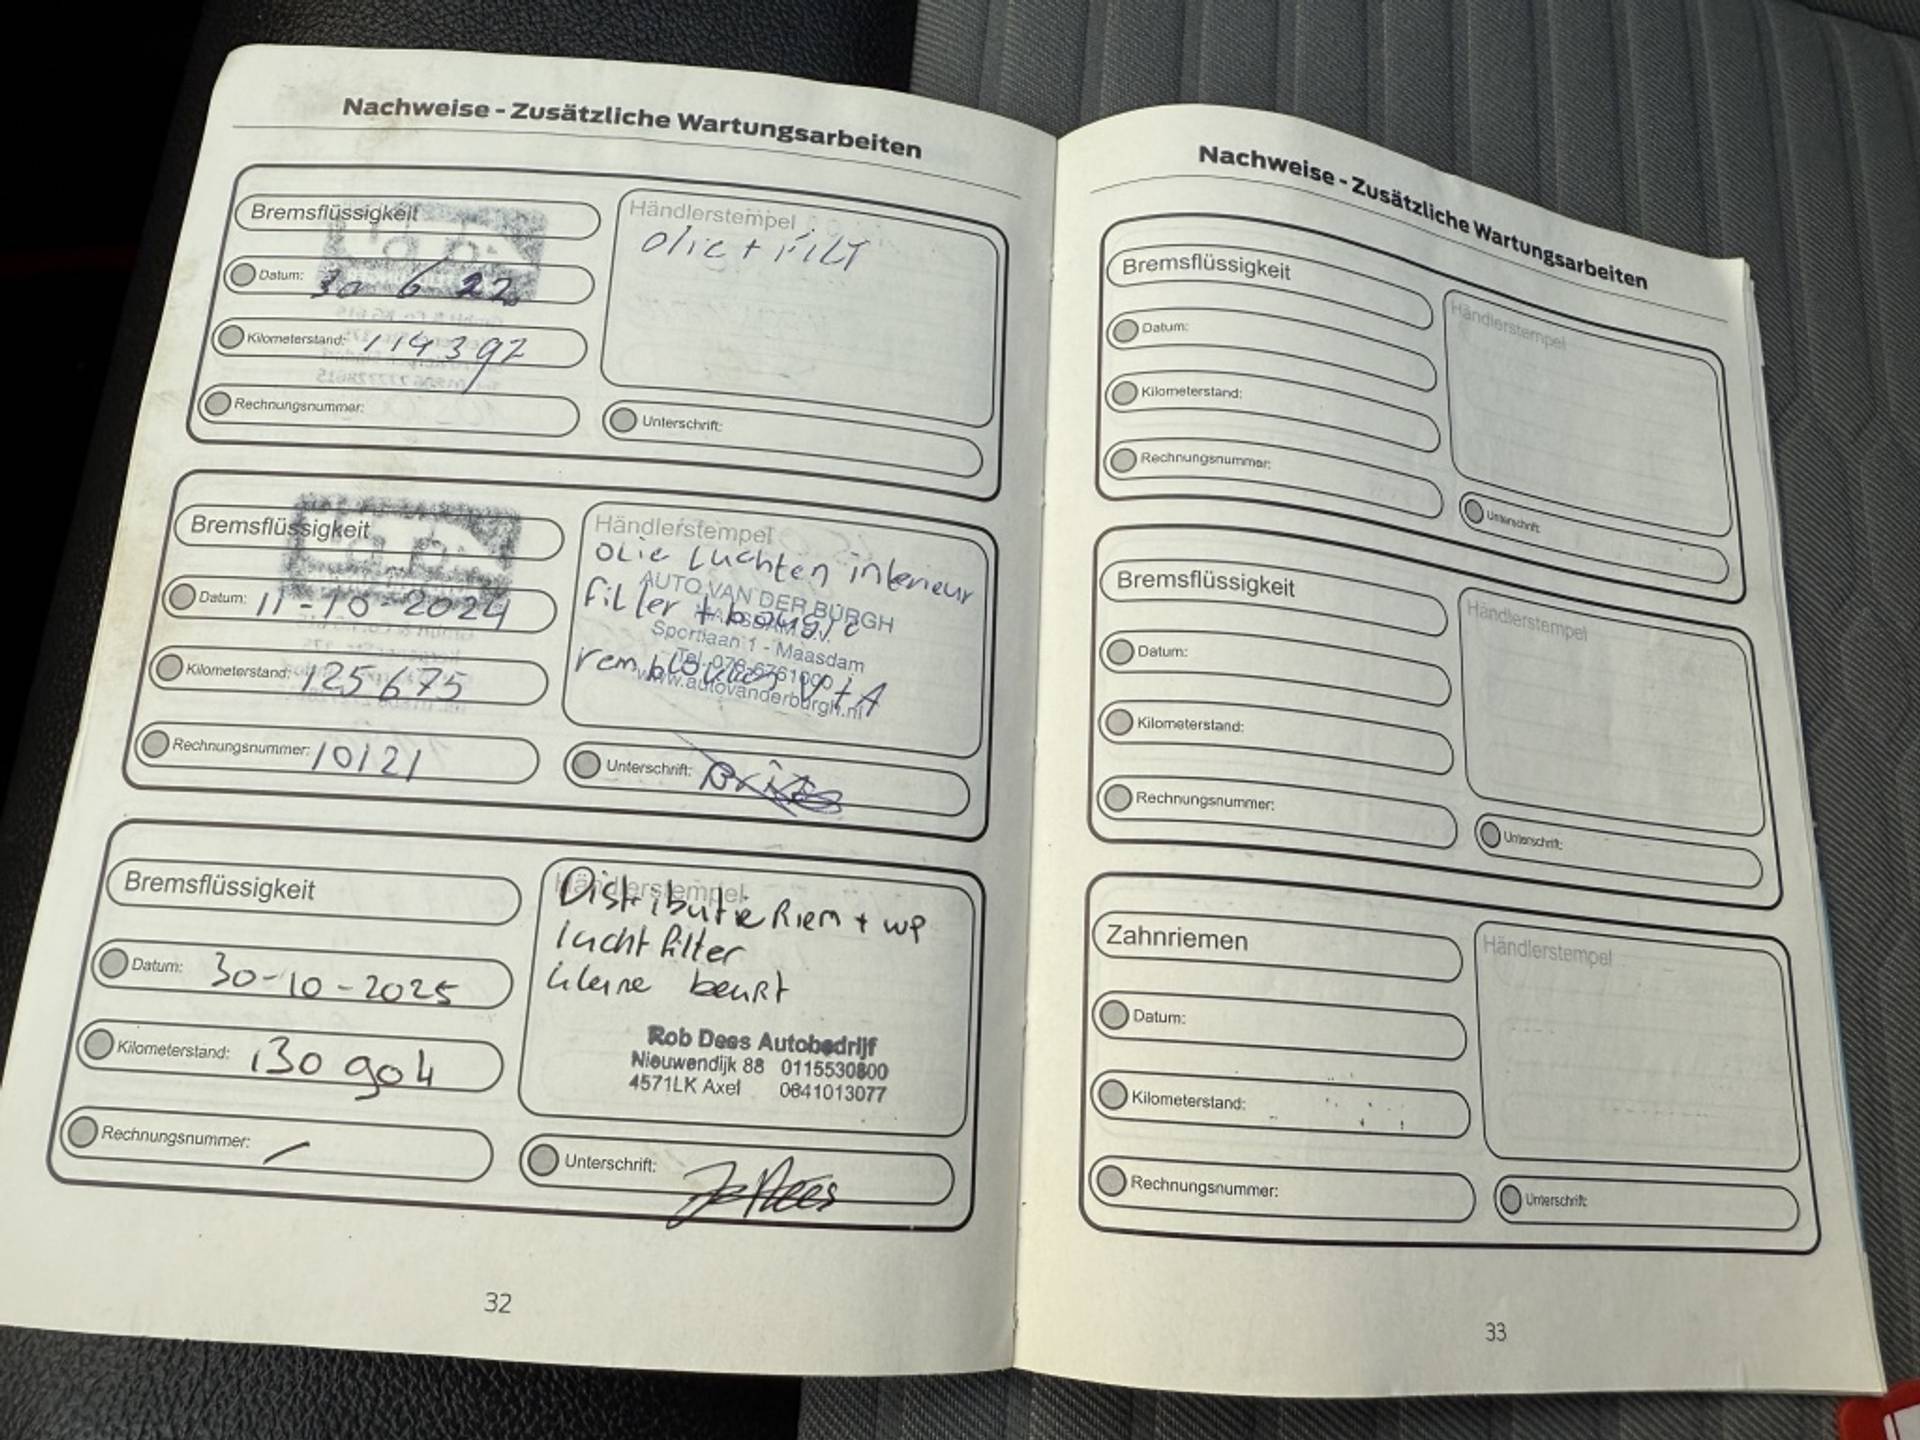 Nachweise - Zusätzliche Wartungsarbeiten
Bremsflüssigkeit
Datum: 30 6 22
Kilometerstand: 114392
Rechnungsnummer:
Händlerstempel
olie + FILT
Unterschrift:
Bremsflüssigkeit
Datum: 11-10-2024
Kilometerstand: 125675
Rechnungsnummer: 10121
Händlerstempel
olie Luchten interieur
filter + bougie
remblokken V + A
AUTO VAN DER BURGH
MAASDAM B.V.
Sportlaan 1 - Maasdam
Tel. 078-6761000
www.autovanderburgh.nl
Unterschrift:
Bremsflüssigkeit
Datum: 30-10-2025
Kilometerstand: 130904
Rechnungsnummer: /
Händlerstempel
Distributie Riem + WP
lucht filter
kleine beurt
Rob Dees Autobedrijf
Nieuwendijk 88 0115530800
4571LK Axel 0641013077
Unterschrift: Dees
32
Nachweise - Zusätzliche Wartungsarbeiten
Bremsflüssigkeit
Datum:
Kilometerstand:
Rechnungsnummer:
Händlerstempel
Unterschrift:
Bremsflüssigkeit
Datum:
Kilometerstand:
Rechnungsnummer:
Händlerstempel
Unterschrift:
Zahnriemen
Datum:
Kilometerstand:
Rechnungsnummer:
Händlerstempel
Unterschrift:
33